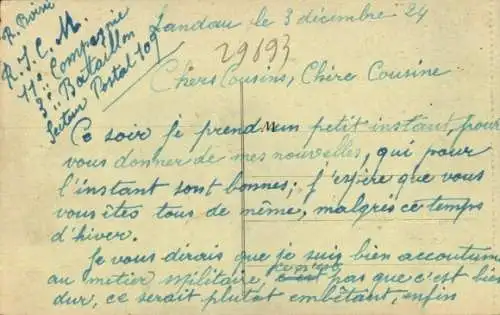 R. Boiné
R. I. C. M.
11e Compagnie
3e Bataillon
Secteur Postal 107
Landau le 3 décembre 24
29893
Chers Cousins, Chère Cousine
Ce soir je prend un petit instant, pour
vous donner de mes nouvelles, qui pour
l'instant sont bonnes; j'espère que vous
vous êtes tous de même, malgrés ce temps
d'hiver.
Je vous dirais que je suis bien accoutumé
au métier militaire, ce n'est pas que c'est bien
dur, ce serait plutot embêtant, enfin